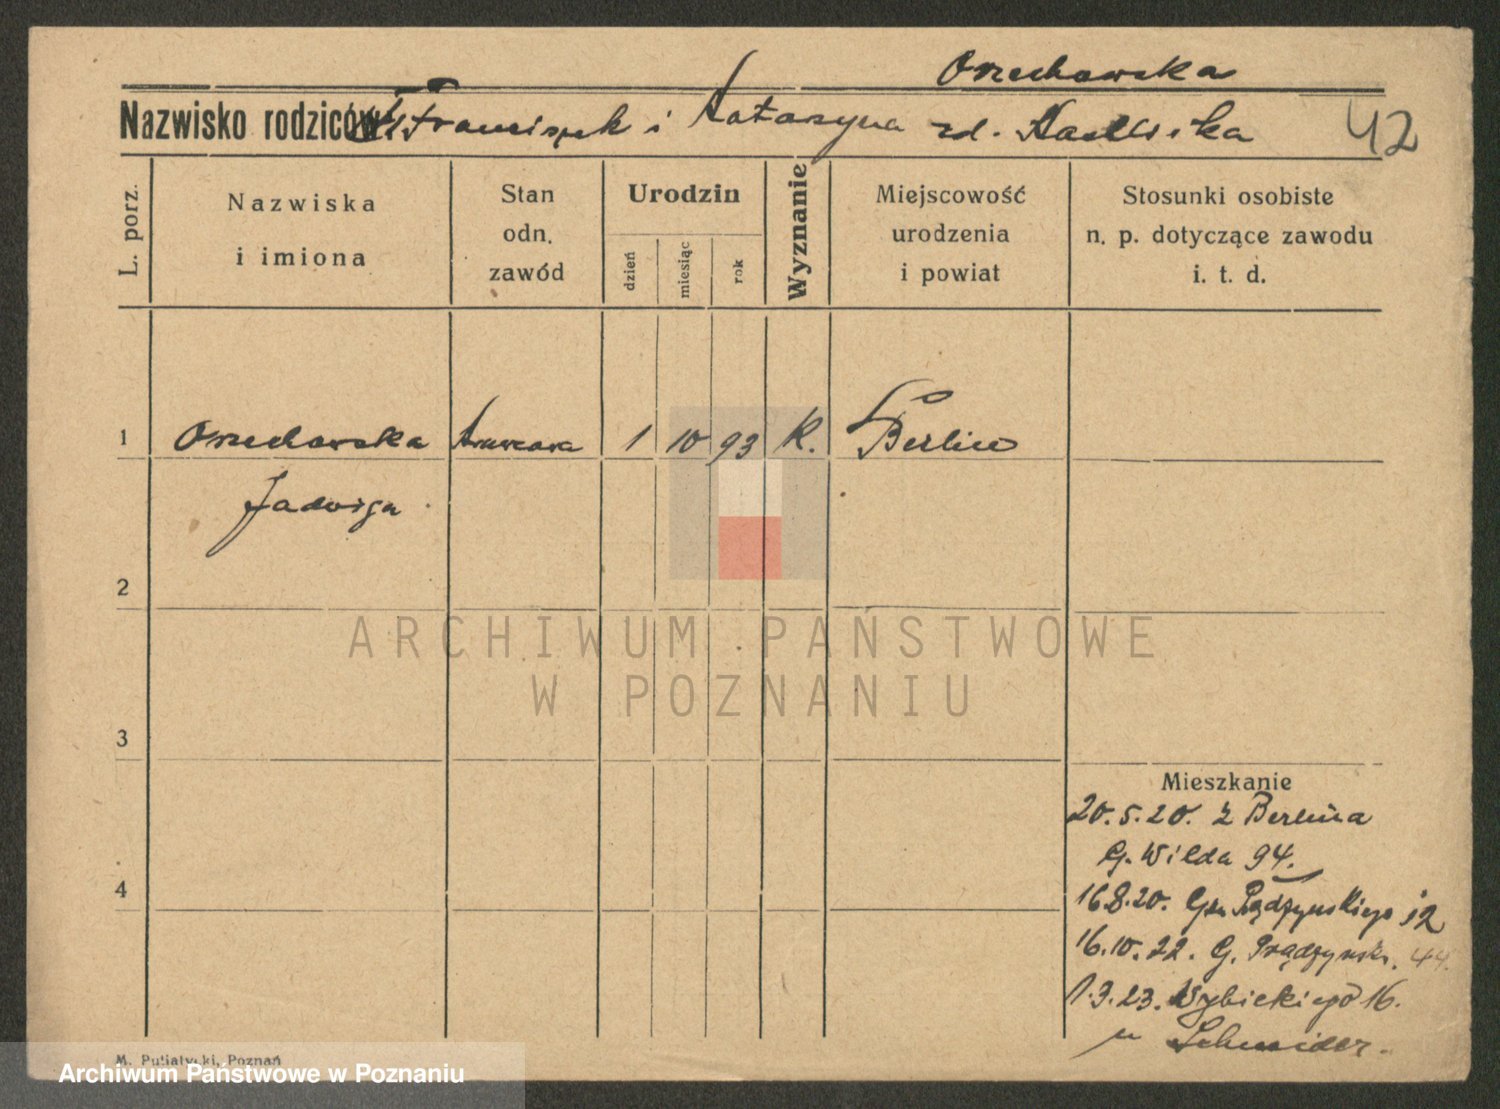 Orzechowska
Nazwisko rodziców Franciszek i Katarzyna zd.
42
L. porz.
Nazwiska
i imiona
Stan
odn.
zawód
Urodzin
dzień
miesiąc
rok
Wyznanie
Miejscowość
urodzenia
i powiat
Stosunki osobiste
n. p. dotyczące zawodu
i. t. d.
1 Orzechowska Krawcowa 1 10 93 K. Berlin
Jadwiga
2
ARCHIWUM PAŃSTWOWE
W POZNANIU
3
Mieszkanie
20.5.20. z Berlina
G. Wilda 94.
4
16.8.20. Prądzyńskiego 12
16.10.22. G. Prądzyńsk. 44.
1.3.23. Wybickiego 16.
u Schneider.
M. Putiatycki, Poznań
Archiwum Państwowe w Poznaniu